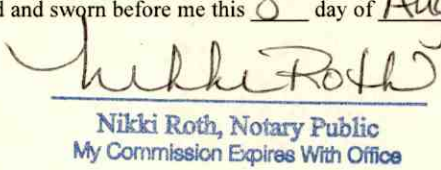 d and sworn before me this 8 day of Aug
Nikki Roth
Nikki Roth, Notary Public
My Commission Expires With Office